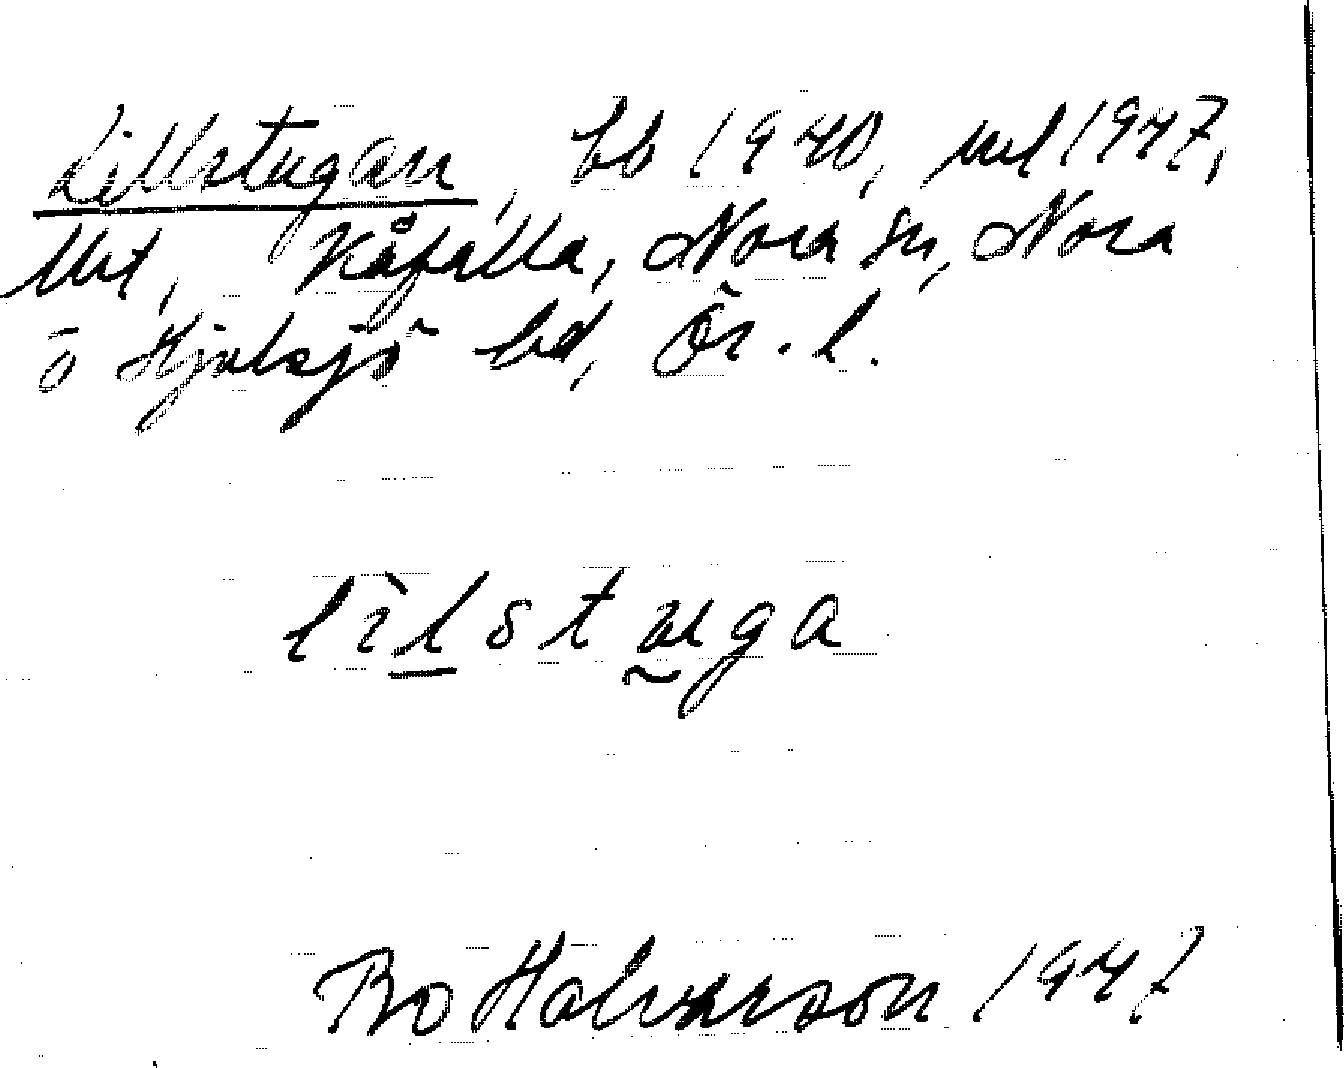 Lillstugan, bb 1940, uul 1947,
Ust, Kåfalla, Nora sn, Nora
o Hjulsjö bd, Ör. l.
lìlstuga
Bo Halvarson 1947